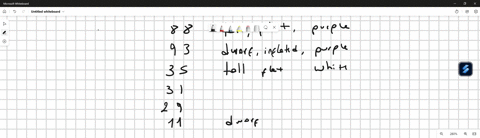 Microsoft Whiteboard
Untitled whiteboard
88 purple
93 dwarf, inflated, purple
35 tall flat white
31
29
11 dwarf